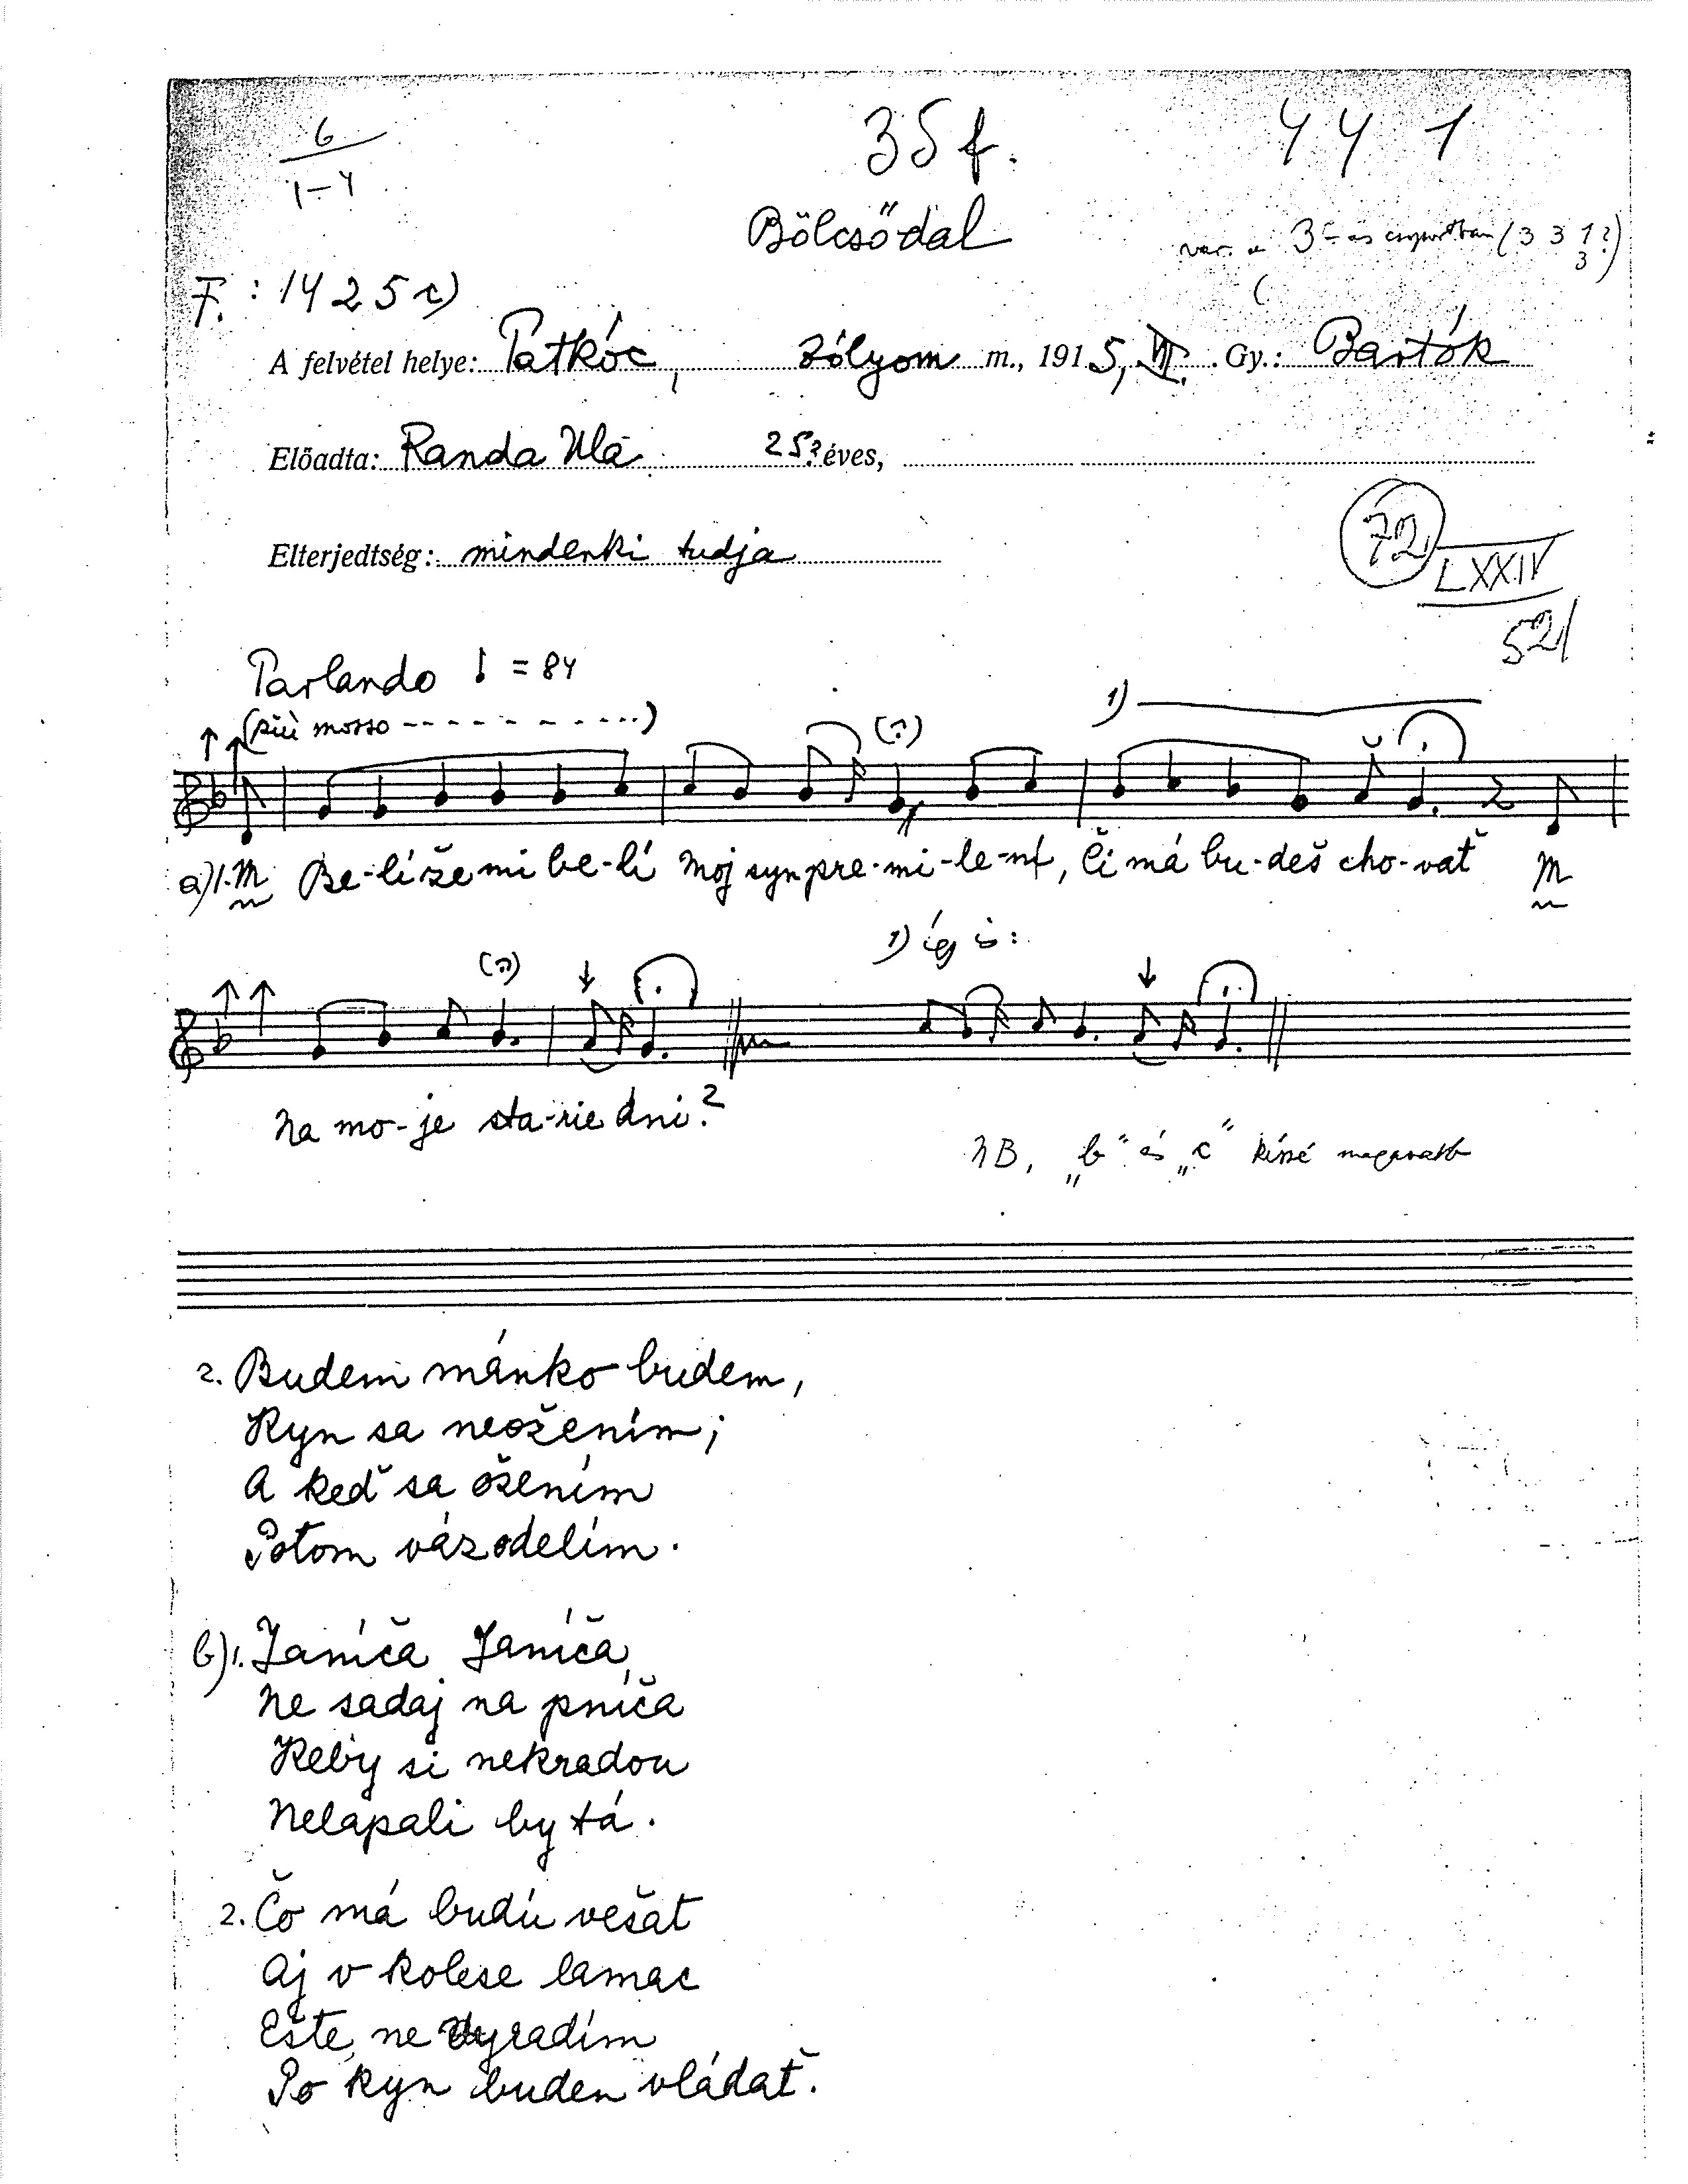 6
1-4
35 f.
44 1
Bölcsődal
var. a 3-as csoportban (3 3 1?)
3
F. : 1425 c)
A felvétel helye: Patkóc, Zólyom m., 1915, VII. Gy.: Bartók
Előadta: Randa Ula 25? éves,
Elterjedtség: mindenki tudja
72
LXXIV
521
Parlando ♩ = 84
(più mosso - - - - - - - - -)
1)
a) 1. M Be-lí že mi be-lí Moj syn pre-mi-le-ní, Či má bu-deš cho-vať M
1) így is:
Na mo-je sta-rie dni?
NB. „b" és „c" kissé magasabb
2. Budem mánko budem,
Kyn sa neožením;
A keď sa ožením
Potom vás odelím.
b) 1. Janíča Janíča,
Ne sadaj na pníča
Keby si nekradou
Nelapali by tá.
2. Čo má budú vešať
Aj v kolese lamac
Ešte ne vyradím
Po kyn buden vládať.